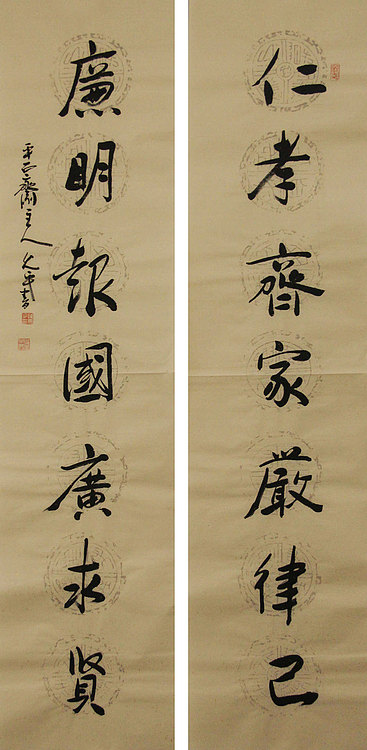 仁孝齊家嚴律己
廉明報國廣求賢
平正齋主人